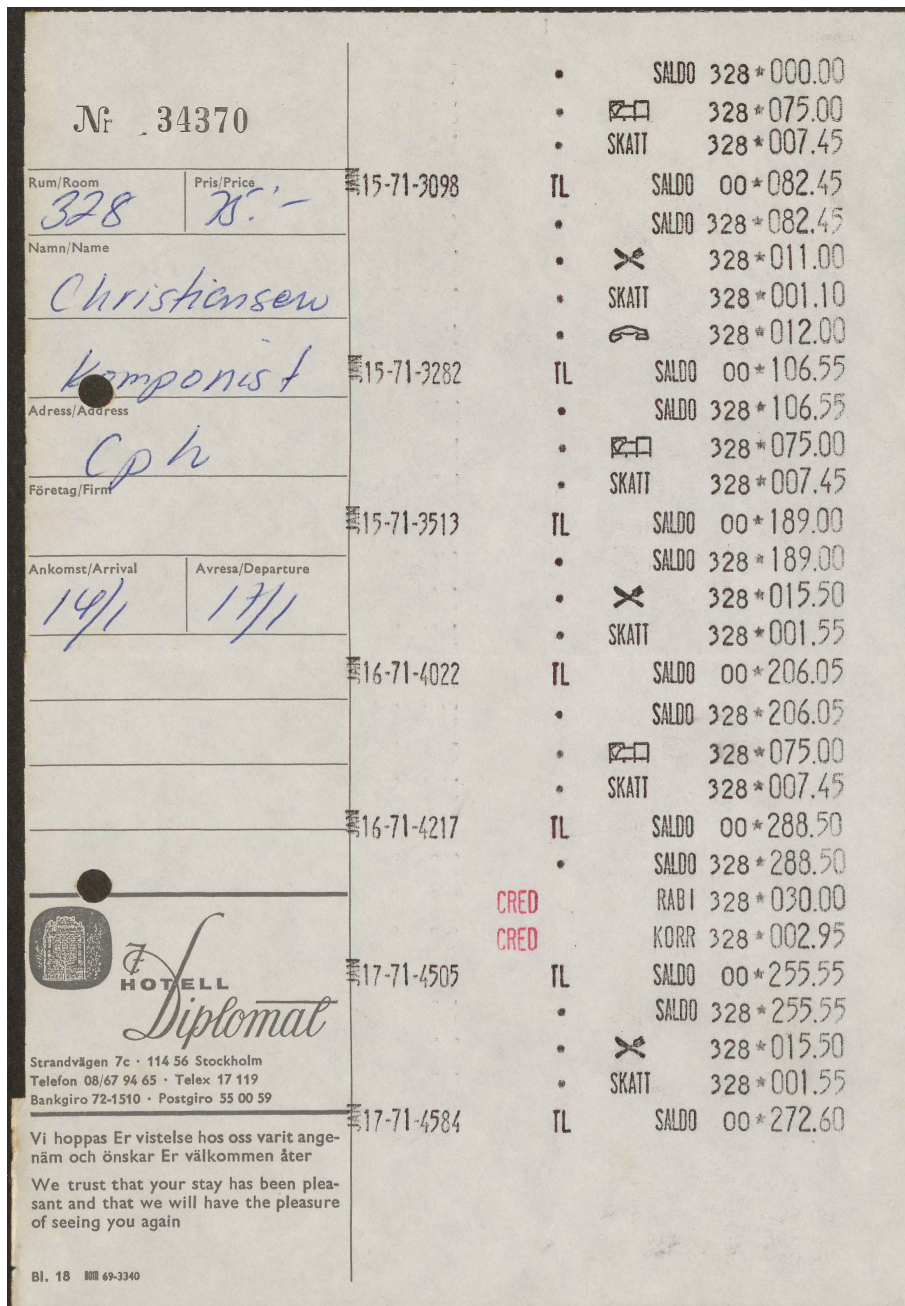 Nr 34370
Rum/Room Pris/Price
328 75.'-
Namn/Name
Christiansen
Komponist
Adress/Address
Cph
Företag/Firm
Ankomst/Arrival Avresa/Departure
14/1 17/1
HOTELL
Diplomat
Strandvägen 7c · 114 56 Stockholm
Telefon 08/67 94 65 · Telex 17 119
Bankgiro 72-1510 · Postgiro 55 00 59
Vi hoppas Er vistelse hos oss varit ange-
näm och önskar Er välkommen åter
We trust that your stay has been plea-
sant and that we will have the pleasure
of seeing you again
Bl. 18 69-3340
• SALDO 328*000.00
• 328*075.00
• SKATT 328*007.45
JAN 15-71-3098 TL SALDO 00*082.45
• SALDO 328*082.45
• 328*011.00
• SKATT 328*001.10
• 328*012.00
JAN 15-71-3282 TL SALDO 00*106.55
• SALDO 328*106.55
• 328*075.00
• SKATT 328*007.45
JAN 15-71-3513 TL SALDO 00*189.00
• SALDO 328*189.00
• 328*015.50
• SKATT 328*001.55
JAN 16-71-4022 TL SALDO 00*206.05
• SALDO 328*206.05
• 328*075.00
• SKATT 328*007.45
JAN 16-71-4217 TL SALDO 00*288.50
• SALDO 328*288.50
CRED RABI 328*030.00
CRED KORR 328*002.95
JAN 17-71-4505 TL SALDO 00*255.55
• SALDO 328*255.55
• 328*015.50
• SKATT 328*001.55
JAN 17-71-4584 TL SALDO 00*272.60